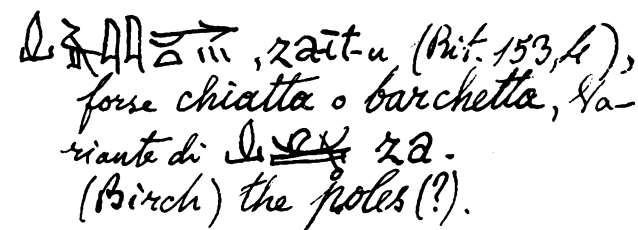 , zaït-u (Rit. 153, 4),
forse chiatta o barchetta, Va-
riante di za.
(Birch) the poles (?).